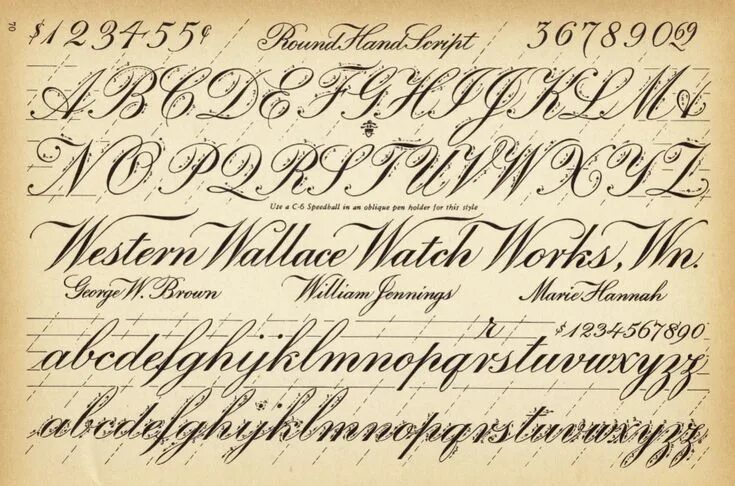 70
$123455¢ Round Hand Script 3678906９
ABCDEFGHIJKLM&
NOPQRSTUVWXYZ
Use a C-6 Speedball in an oblique pen holder for this style
Western Wallace Watch Works, Wn.
George W. Brown William Jennings Marie Hannah
r $1234567890
abcdefghijklmnopqrstuvwxyzz
abcdefghijklmnopqrstuvwxyzz